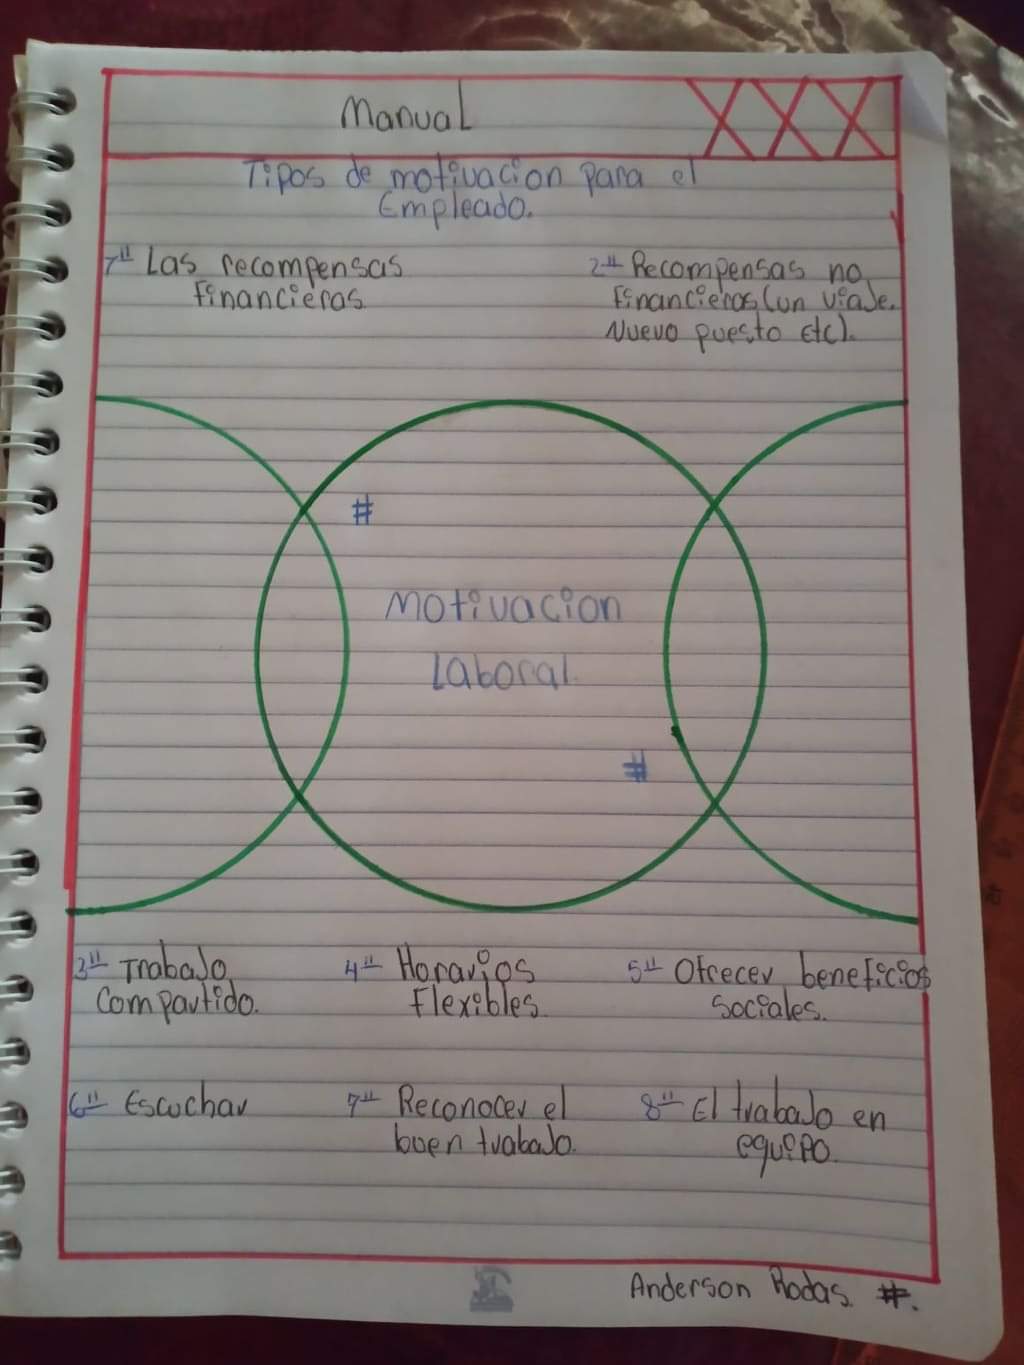 Manual
Tipos de motivacion para el
Empleado.
1" Las recompensas
financieras
2" Recompensas no
financieras (un viaje.
Nuevo puesto Etc).
#
Motivacion
Laboral.
#
3" Trabajo
Compartido.
4" Horarios
Flexibles.
5" Ofrecer beneficios
Sociales.
6" Escuchar
7" Reconocer el
buen trabajo.
8" El trabajo en
equipo.
Anderson Rodas #.